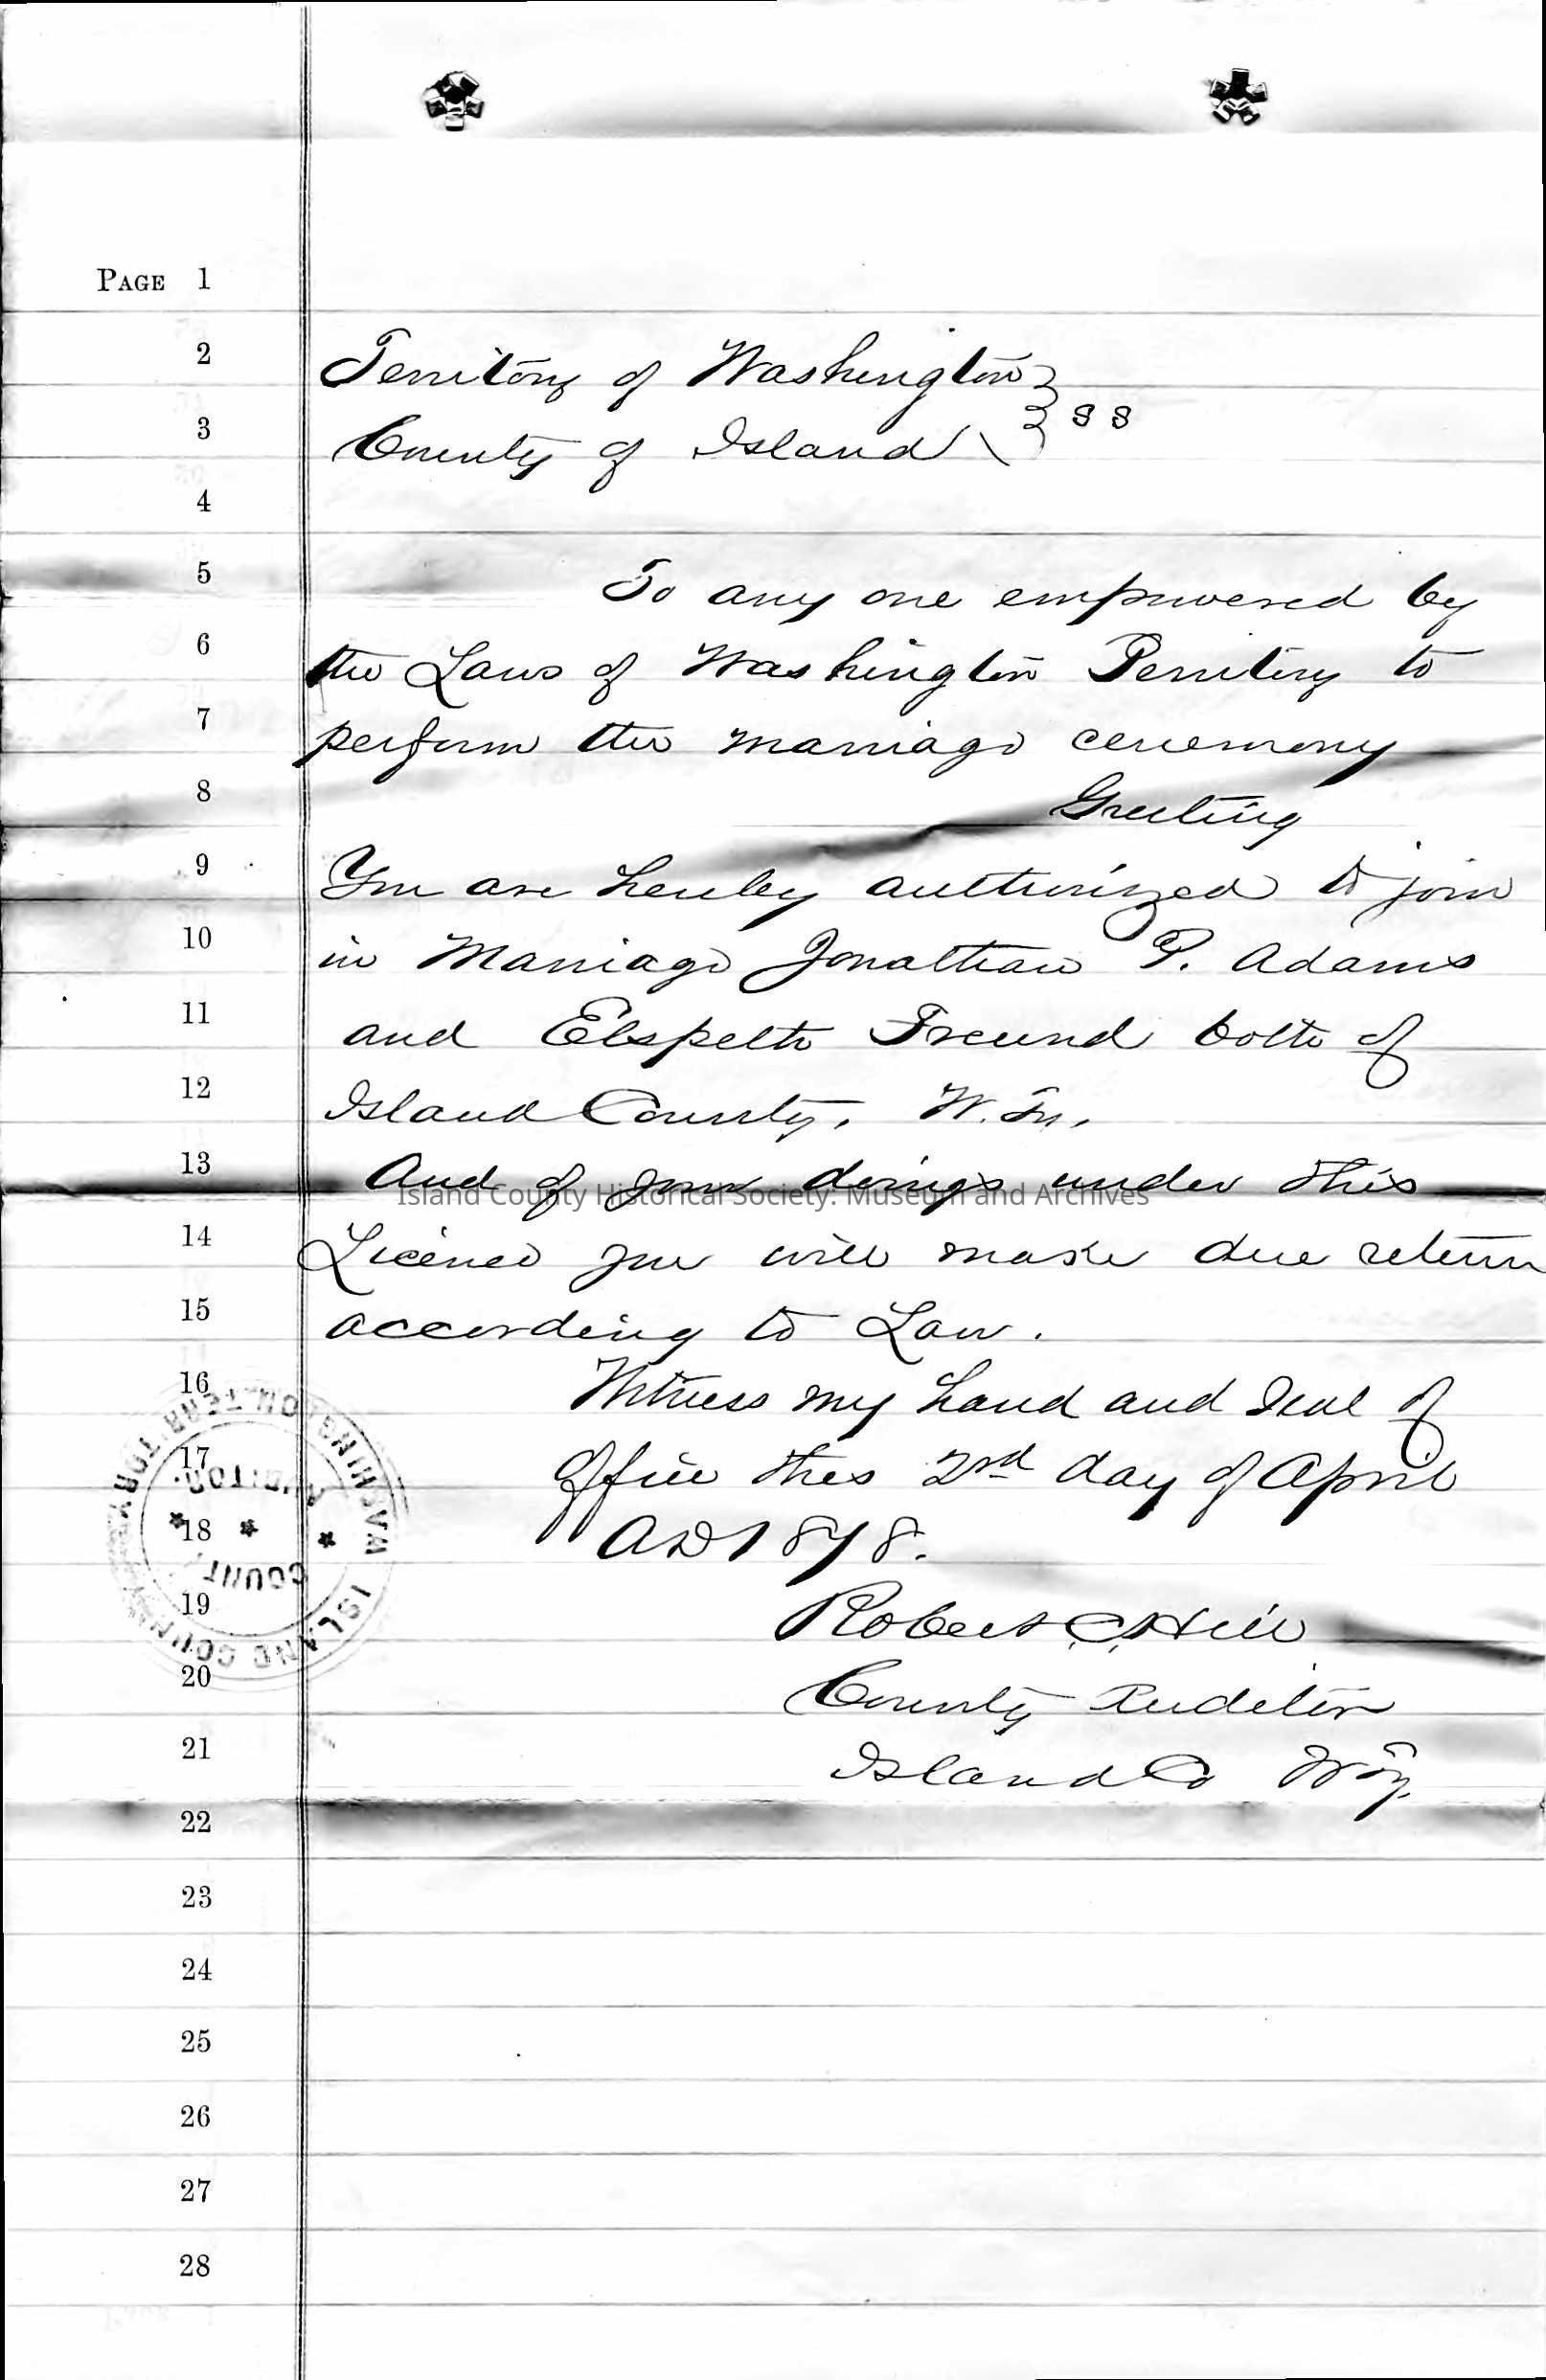 PAGE 1
2
Territory of Washington } S S
3
County of Island }
4
5
To any one empowered by
6
the Laws of Washington Territory to
7
perform the marriage ceremony
8
Greeting
9
You are hereby authorized to join
10
in Marriage Jonathan P. Adams
11
and Elspeth Freund both of
12
Island County, W. Ty,
13
And of your doings under this
Island County Historical Society: Museum and Archives
14
License you will make due return
15
according to Law.
16
Witness my hand and Seal of
17
Office this 2nd day of April
18
AD 1878.
19
Robert C. Hill
20
County Auditor
21
Island Co W Ty.
22
23
24
25
26
27
28
WASHINGTON TERRITORY
AUDITOR
COUNTY
ISLAND COUNTY